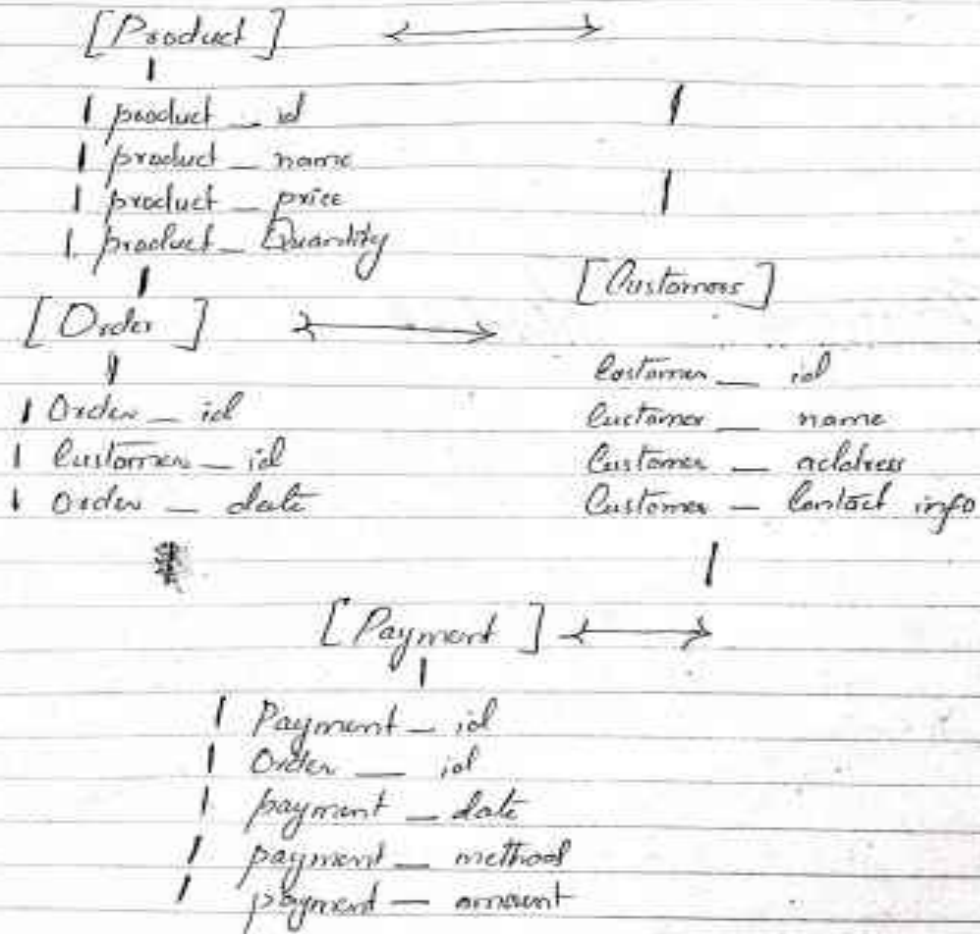 [Product]
product_id
product_name
product_price
product_Quantity
[Customers]
[Order]
Customer_id
Order_id
Customer_name
Customer_id
Customer_address
Order_date
Customer_Contact info
[Payment]
Payment_id
Order_id
payment_date
payment_method
payment_amount